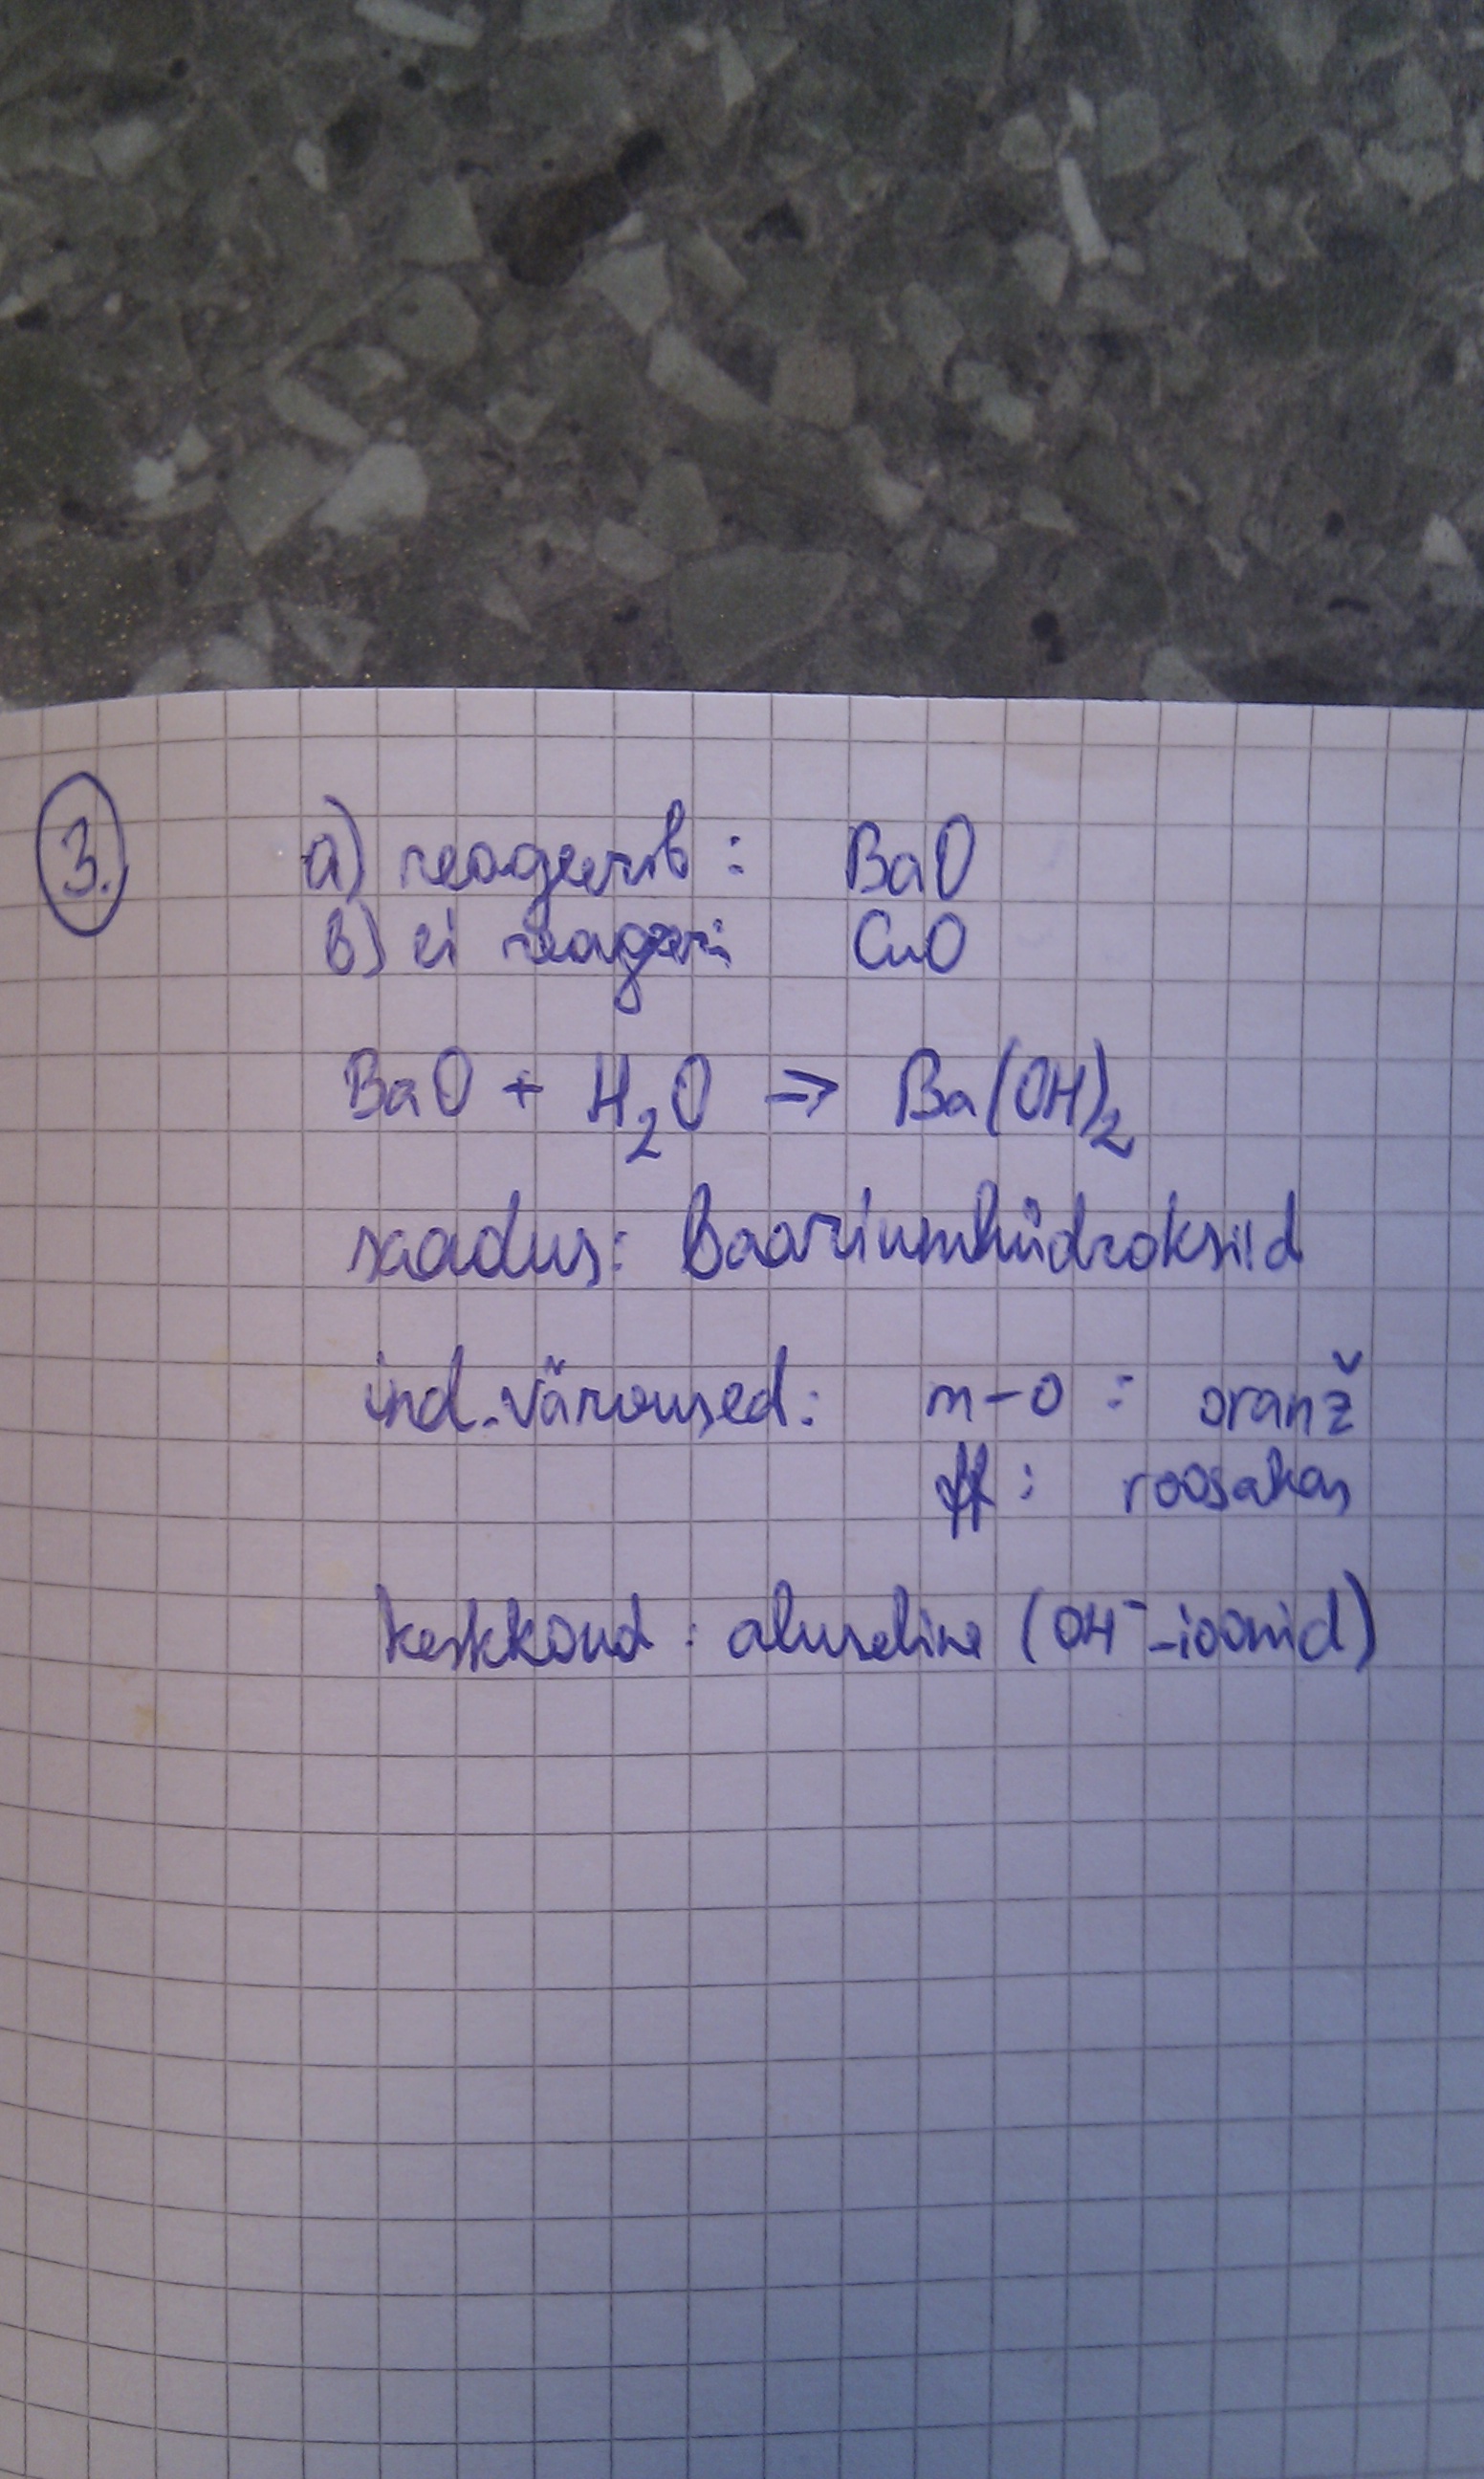 3. a) reageerib: BaO
b) ei reageeri CuO
BaO + H₂O => Ba(OH)₂
saadus: Baariumhüdroksiid
ind.värvused: m-o : oranž
ff : roosakas
keskkond : aluseline (OH⁻-ioonid)